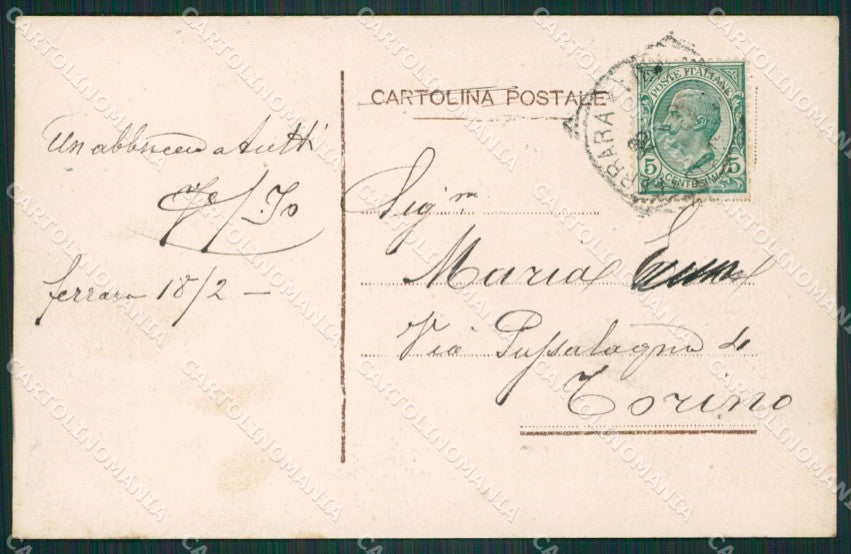 CARTOLINA POSTALE
POSTE ITALIANE
5 5
CENTESIMI
FERRARA
Un abbraccio a tutti
Ferrara 18/2 —
Sigra
Maria
Via
Torino
CARTOLINOMANIA